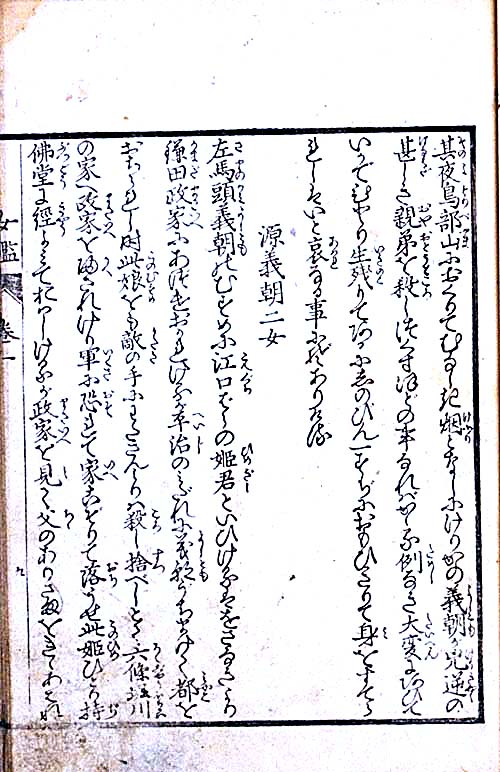 其夜鳥部山におくりてむなしき烟となしにけりかの義朝の兇逆の
甚しき親弟を殺しつくすほどの事なれバかゝる例なき大変にあひて
いかでむなしく生残りてあるに しのびん一すぢにおもひきりて身をすてら
れしハいと哀なる事にぞありける
源義朝二女
左馬頭義朝のむすめに江口ばらの姫君といひけるをさなきより
鎌田政家にあづけおかれけるが平治のみだれに義朝うちまけて都を
おちられし時此娘をも敵の手にわたさんより殺し捨べしとて六條堀川
の家へ政家を帰されけり軍に恐れて家こぞりて落うせ此姫ひとり持
佛堂に經よみておハしけるが政家を見て父のありさまをきてあはれ
女鑑 巻一
九